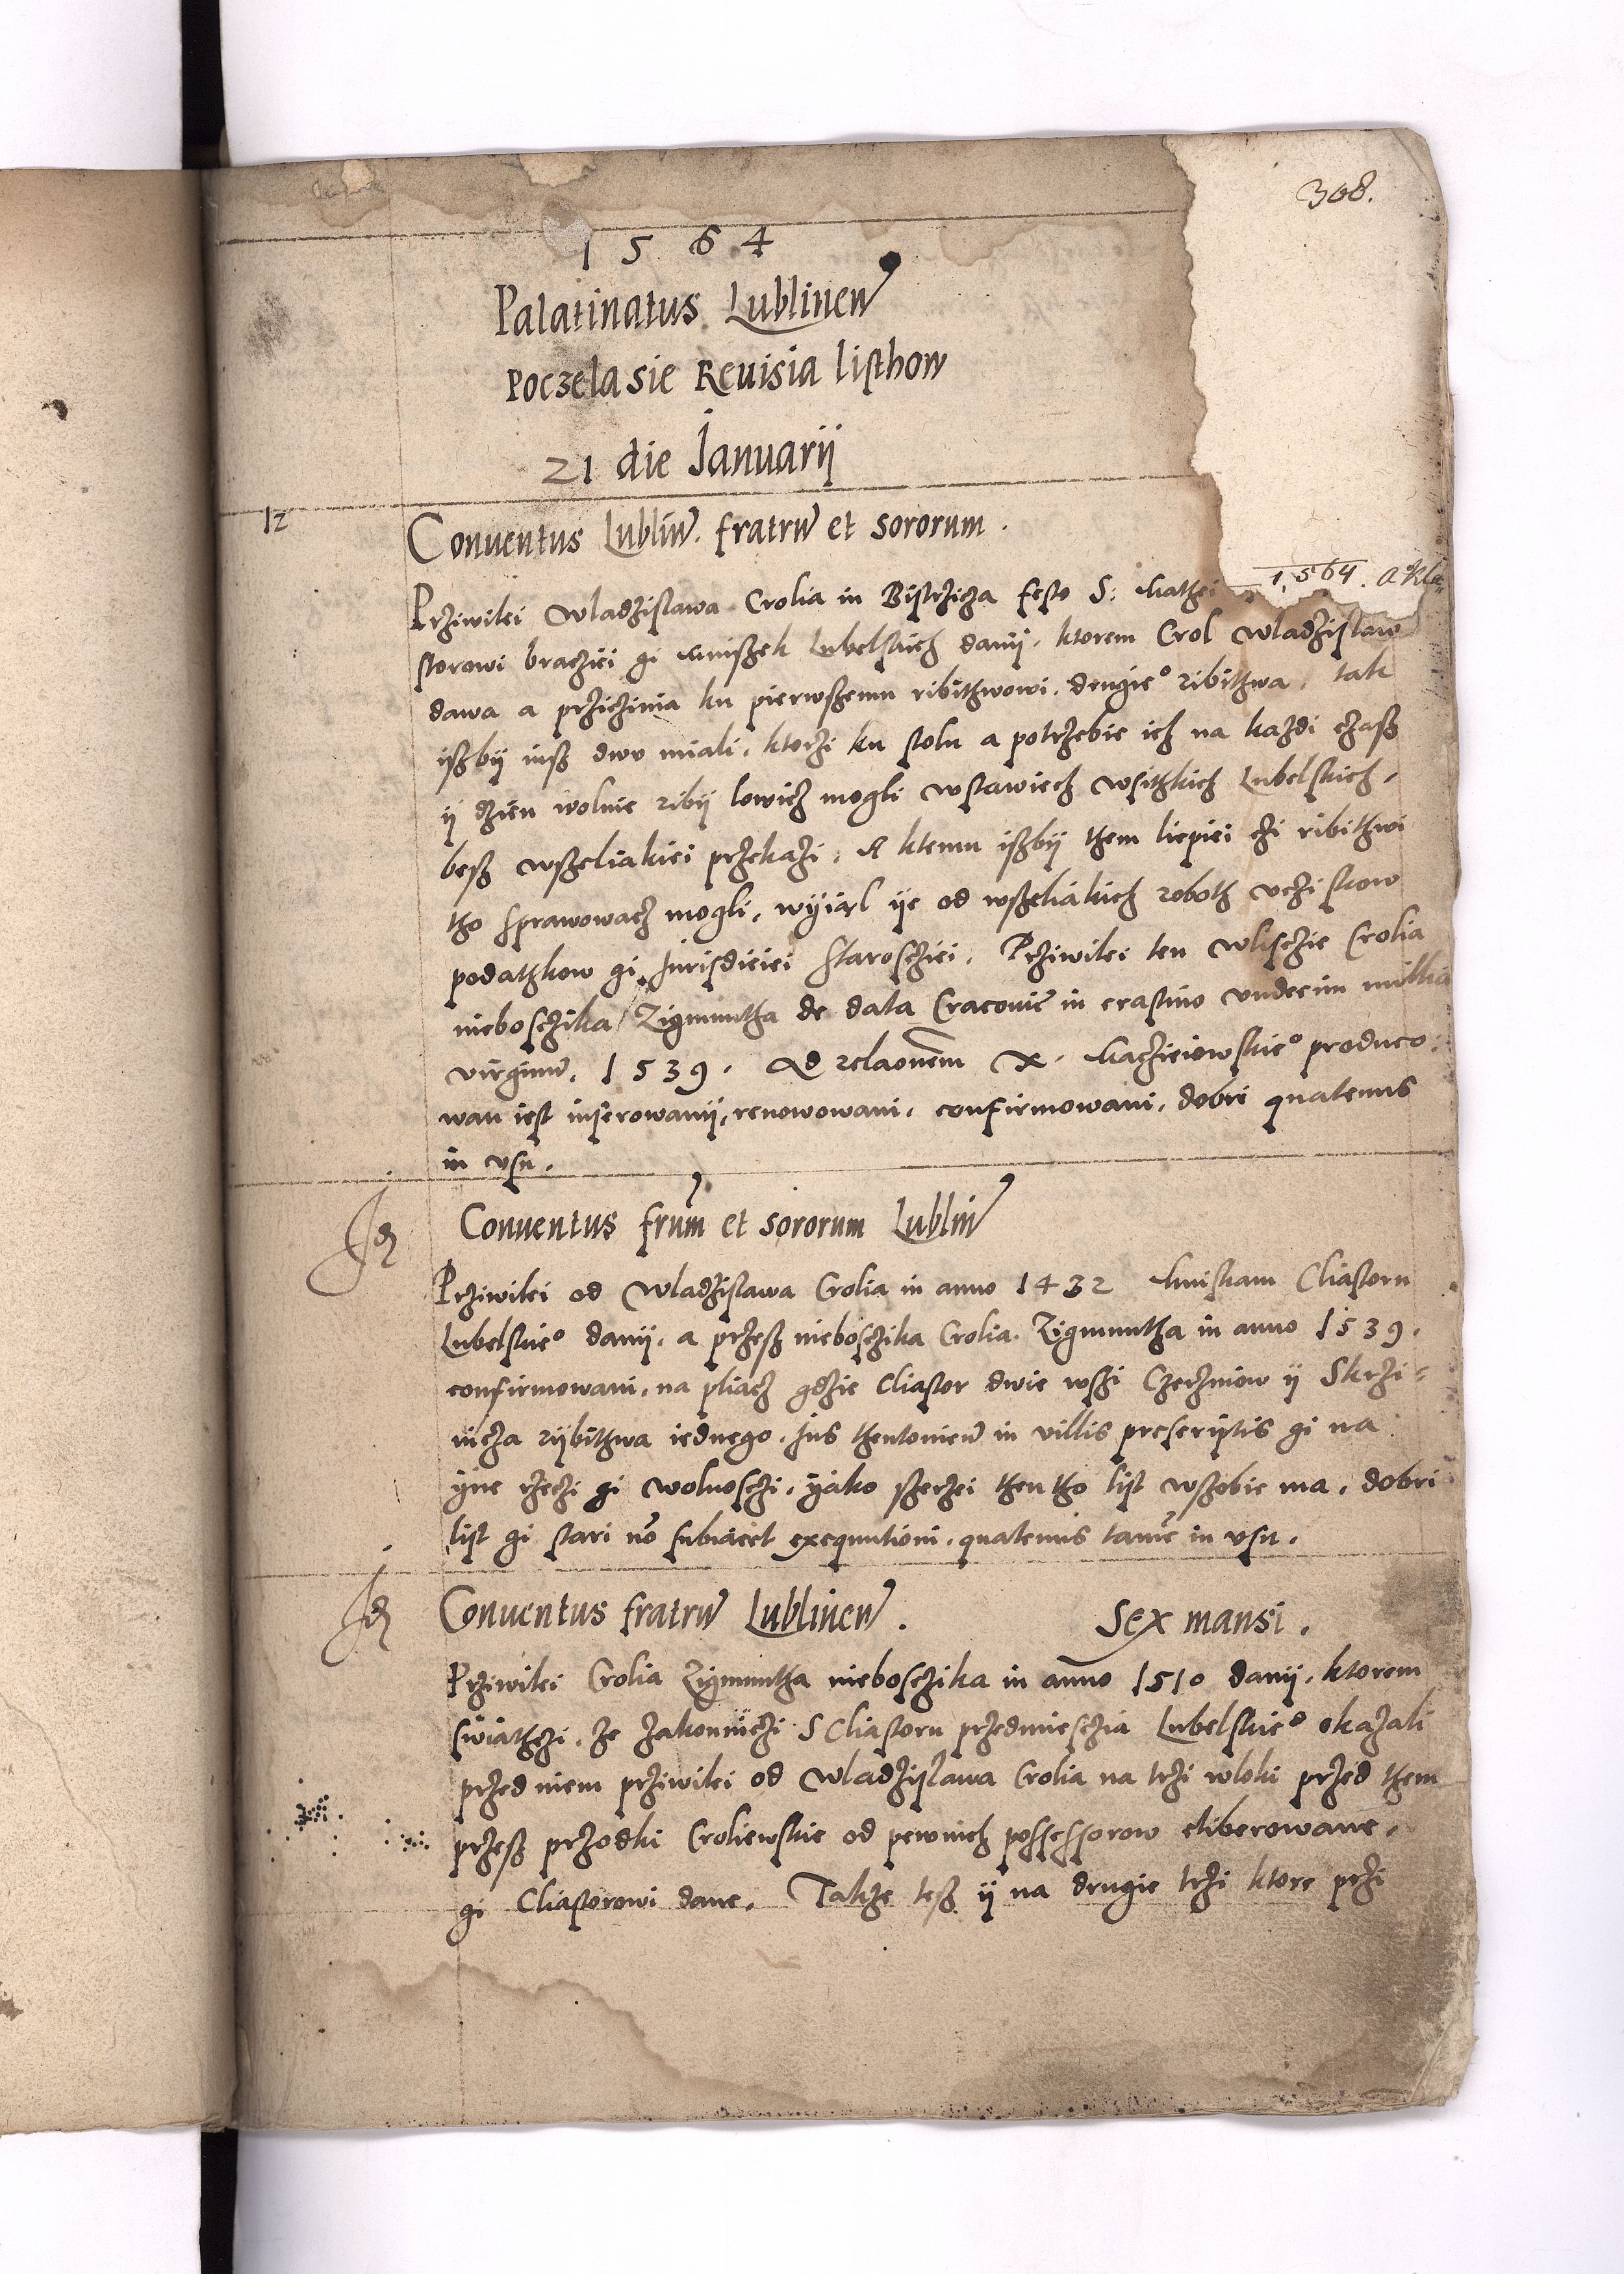 308.
1564
Palatinatus Lublinen
Poczela sie Reuisia listhow
21 die Januarij
12
Conuentus Lublin. fratru et sororum.
Prziwilei Wladzislawa Crolia in Bistrzicza festo S: Mathei 1564. a Kla
storowi bracziei gi mnisżek Lubelskich danij, ktorem Crol Wladzislaw
dawa a prziczinia ku pierwszemu ribithwowi, drugie° ribithwa, tak
iszbij iusz dwu miali, ktorzi ku stolu a potrzebie ich na kazdi czasz
ij dzien wolnie ribij lowicz mogli wstawiech wsitzkich Lubelskich,
besz wszeliakiei przekazi, A ktemu iszbij them liepiei czi ribithwi
tho sprawowacz mogli, wyiąl ije od wszeliakich roboth vczistkow
podatzkow gi Jurisdiciei starosciei. Prziwilei ten wlisczie Crolia
nieboszika Zigmuntha de data Cracouie in crastino vndecim millia
virginu, 1539. Ad relaonem X. Macziejowskie° produco-
wan iest inserowanij, renowowani, confirmowani, dobri quatenus
in vsu.
Jd
Conuentus frum et sororum Lublin
Prziwilei od Wladzislawa Crolia in anno 1432 Mniskam Cliastoru
Lubelskie° danij, a przesz nieboszika Crolia Zigmuntha in anno 1539.
confirmowani, na pliacz gdzie Cliastor dwie wszi Czerzniow ij Skrzi-
nicza rijbithwa iednego, Jus thentonicu in villis prescriptis gi na
ijne rzeczi gi wolnosczi, ijako szerzei then tho list wszobie ma, dobri
list gi stari no subiacet exequutioni, quatenus tame in vsu.
Jd
Conuentus fratru Lublinen. Sex mansi.
Prziwilei Crolia Zigmuntha nieboszika in anno 1510 danij, ktorem
swiathczi, że zakonniczi S Cliastoru przedmiesczia Lubelskie° okazali
przed niem prziwilei od Wladzislawa Crolia na trzi wloki przed them
przesz przodki Croliewskie od pewnich possessorow eliberowane,
gi Cliastorowi dane. Takze tesz ij na drugie trzi ktore przi